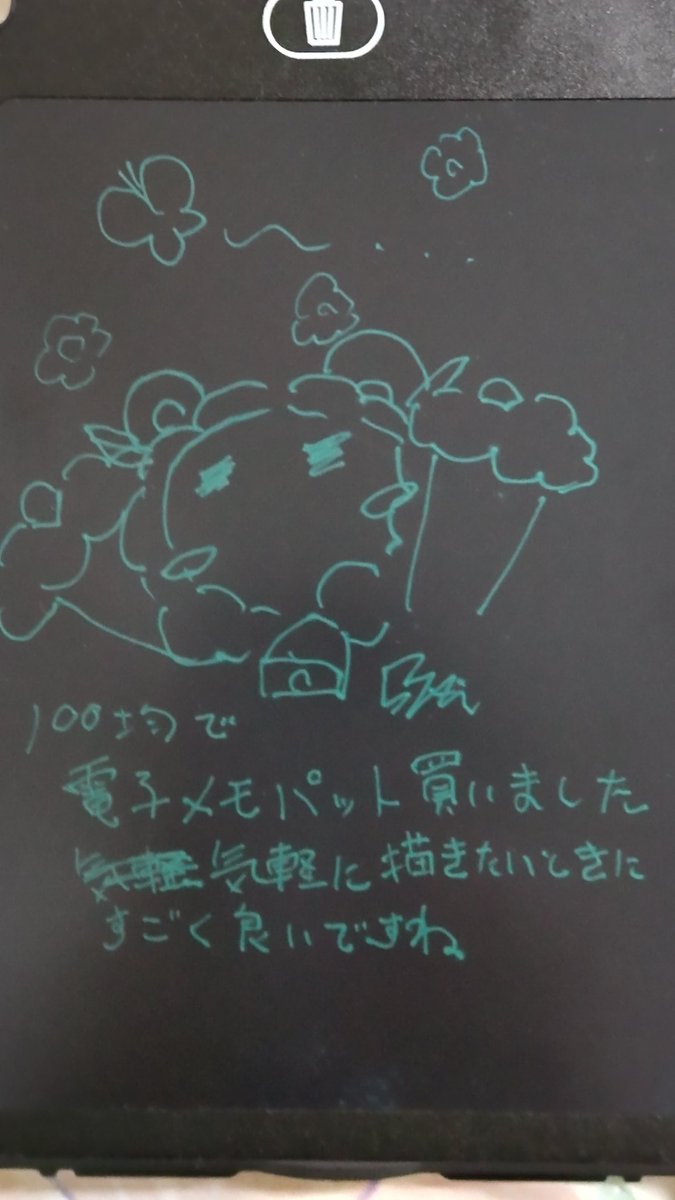 100均で
電子メモパット買いました
気軽に描きたいときに
すごく良いですね